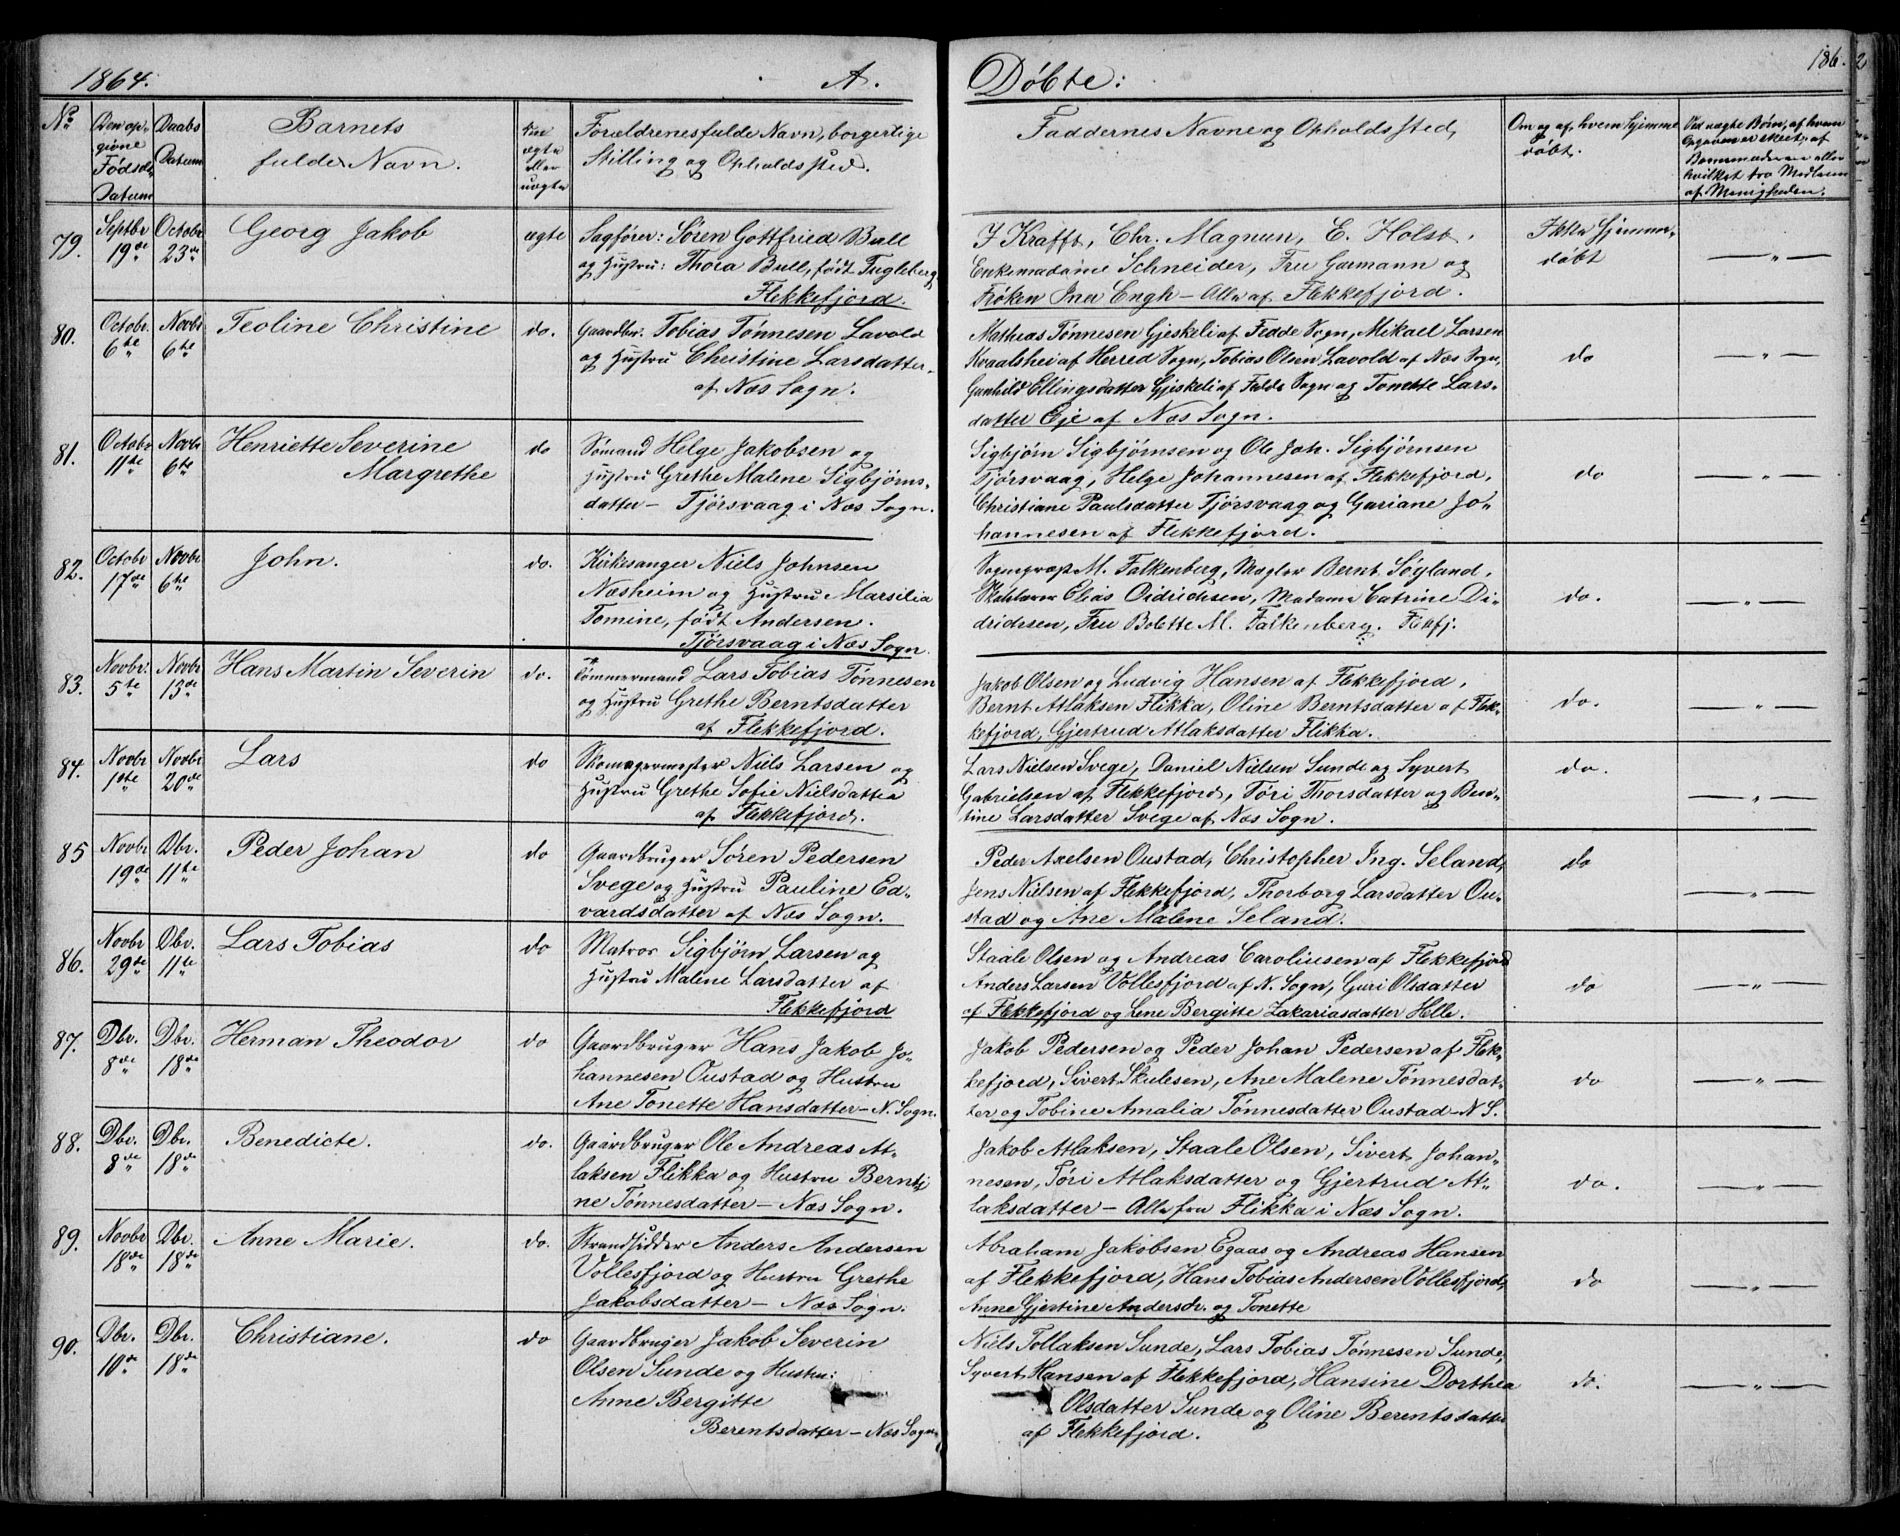 1864.
A.
Döbte:
186.
2
No
Den op-
givne
Fødsels
Datum
Daabs
Datum
Barnets
fulde Navn.
ægte
eller
uægte
Forældrenes fulde Navn, borgerlige
Stilling og Opholdssted.
Faddernes Navne og Opholdssted,
Om og af hvem hjemme
døbt.
Ved uægte Børn, af hvem
Opgaven er skeet, af
Barnemoderen eller
hvilket tro Medlem
af Menigheden.
79.
Septbr
19de
Octobr
23de
Georg Jakob
ægte
Sagfører: Søren Gottfried Bull
og Hustru: Thora Bull, født Fugleberg
Flekkefjord.
J Krafft, Chr. Magnun, E. Holst,
Enkemadame Schneider, Fru Garmann og
Frøken Ina Engh – Alle af Flekkefjord.
Ikke hjemme-
døbt
— " —
80.
Octobr.
6te
Novbr
6te
Teoline Christine
do.
Gaardbr. Tobias Tønnesen Lavold
og Hustru Christine Larsdatter.
af Næs Sogn.
Mathias Tønnesen Gjeskeli af Fedde Sogn, Mikael Larsen
Kvaalshei af Herred Sogn, Tobias Olsen Lavold af Næs Sogn,
Gunhild Ellingsdatter Gjeskeli af Fedde Sogn og Tonette Lars-
datter Eje af Næs Sogn.
do
— " —
81.
Octobr
11te
Novbr
6te
Henriette Severine
Margrethe
do
Sømand Helge Jakobsen og
Hustru Grethe Malene Sigbjørns-
datter – Tjørsvaag i Næs Sogn.
Sigbjørn Sigbjørnsen og Ole Joh. Sigbjørnsen
Tjørsvaag, Helge Johannesen af Flekkefjord,
Christiane Paulsdatter Tjørsvaag og Gariane Jo-
hannesen af Flekkefjord.
do
— " —
82.
Octobr
17de
Novbr
6te
John.
do.
Kirkesanger Niels Johnsen
Næsheim og Hustru Marsilia
Tomine, født Andersen.
Tjørsvaag i Næs Sogn.
Sognepræst M. Falkenberg, Mægler Bernt Søyland,
Skolelærer Elias Didrichsen, Madame Catrine Di-
dridesen, Fru Bolette M. Falkenberg. Flekfj.
do.
— " —
83.
Novbr.
5te
Novbr
13de
Hans Martin Severin
do.
Tømmermand Lars Tobias Tønnesen
og Hustru Grethe Berntsdatter
af Flekkefjord.
Jakob Olsen og Ludvig Hansen af Flekkefjord,
Bernt Atlaksen Flikka, Oline Berntsdatter af Flek-
kefjord, Gjertrud Atlaksdatter Flikka.
do.
— " —
84.
Novbr
1ste
Novbr
20de
Lars
do
Skomagermester Niels Larsen og
Hustru Grethe Sofie Nielsdatter
af Flekkefjord.
Lars Nielsen Svege, Daniel Nielsen Sunde og Syvert
Gabrielsen af Flekkefjord, Tøri Thorsdatter og Ben-
tine Larsdatter Svege af Næs Sogn.
do.
— " —
85
Novbr
19de
Dbr.
11te
Peder Johan
do
Gaardbruger Søren Pedersen
Svege og Hustru Pauline Ed-
vardsdatter af Næs Sogn.
Peder Axelsen Oustad, Christopher Ing. Seland,
Jens Nielsen af Flekkefjord, Thorborg Larsdatter Ou-
stad og Ane Malene Seland.
do
— " —
86.
Novbr
29de
Dbr.
11te
Lars Tobias
do
Matros Sigbjørn Larsen og
Hustru Malene Larsdatter af
Flekkefjord
Staale Olsen og Andreas Caroliusen af Flekkefjord
Anders Larsen Vollesfjord af N. Sogn, Guri Olsdatter
af Flekkefjord og Lene Bergitte Zakariasdatter Helle.
do
— " —
87.
Dbr.
8de
Dbr.
18de
Herman Theodor
do
Gaardbruger Hans Jakob Jo-
hannesen Oustad og Hustru
Ane Tonette Hansdatter – N. Sogn.
Jakob Pedersen og Peder Johan Pedersen af Flek-
kefjord, Sivert Skulesen, Ane Malene Tønnesdat-
ter og Tobine Amalia Tønnesdatter Oustad – N S.
do
— " —
88.
Dbr.
8de
Dbr.
18de
Benedicte.
do.
Gaardbruger Ole Andreas At-
laksen Flikka og Hustru Bernti-
ne Tønnesdatter – Næs Sogn.
Jakob Atlaksen, Staale Olsen, Sivert Johan-
nesen, Tøri Atlaksdatter og Gjertrud At-
laksdatter – Alle fra Flikka i Næs Sogn.
do.
— " —
89.
Novbr
18de
Dbr.
18de
Anne Marie.
do.
Strandsidder Anders Andersen
Vollesfjord og Hustru Grethe
Jakobsdatter – Næs Sogn.
Abraham Jakobsen Egaas og Andreas Hansen
af Flekkefjord, Hans Tobias Andersen Vollesfjord,
Anne Gjertine Andersdr. og Tonette
do
— " —
90.
Dbr.
10de
Dbr.
18de
Christiane.
do
Gaardbruger Jakob Severin
Olsen Sunde og Hustru:
Anne Bergitte
Berentsdatter – Næs Sogn.
Niels Tollaksen Sunde, Lars Tobias Tønnesen Sunde,
Syvert Hansen af Flekkefjord, Hansine Dorthea
Olsdatter Sunde og Oline Berentsdatter
af Flekkefjord.
do.
— " —